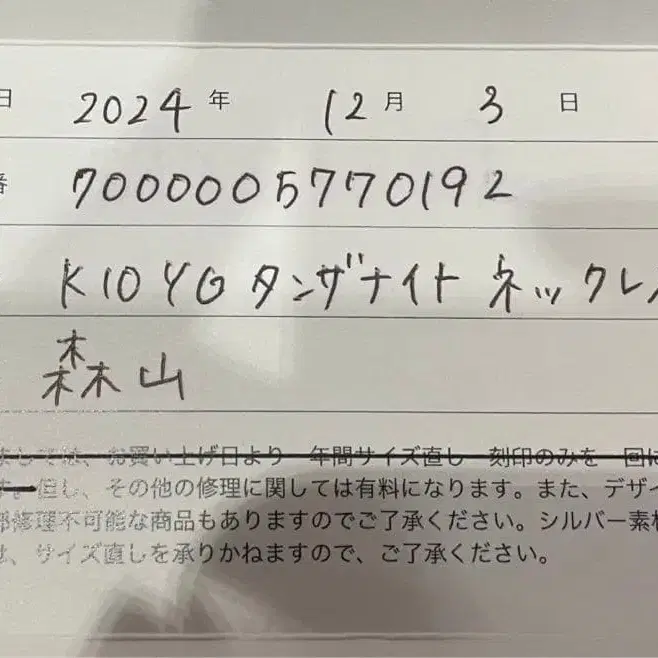 日 2024 年 12 月 3 日
番 7000005770192
K10YG タンザナイト ネックレ
森山
ましては、お買い上げ日より 年間サイズ直し 刻印のみを 回に
す。但し、その他の修理に関しては有料になります。また、デザイ
部修理不可能な商品もありますのでご了承ください。シルバー素材
は、サイズ直しを承りかねますので、ご了承ください。